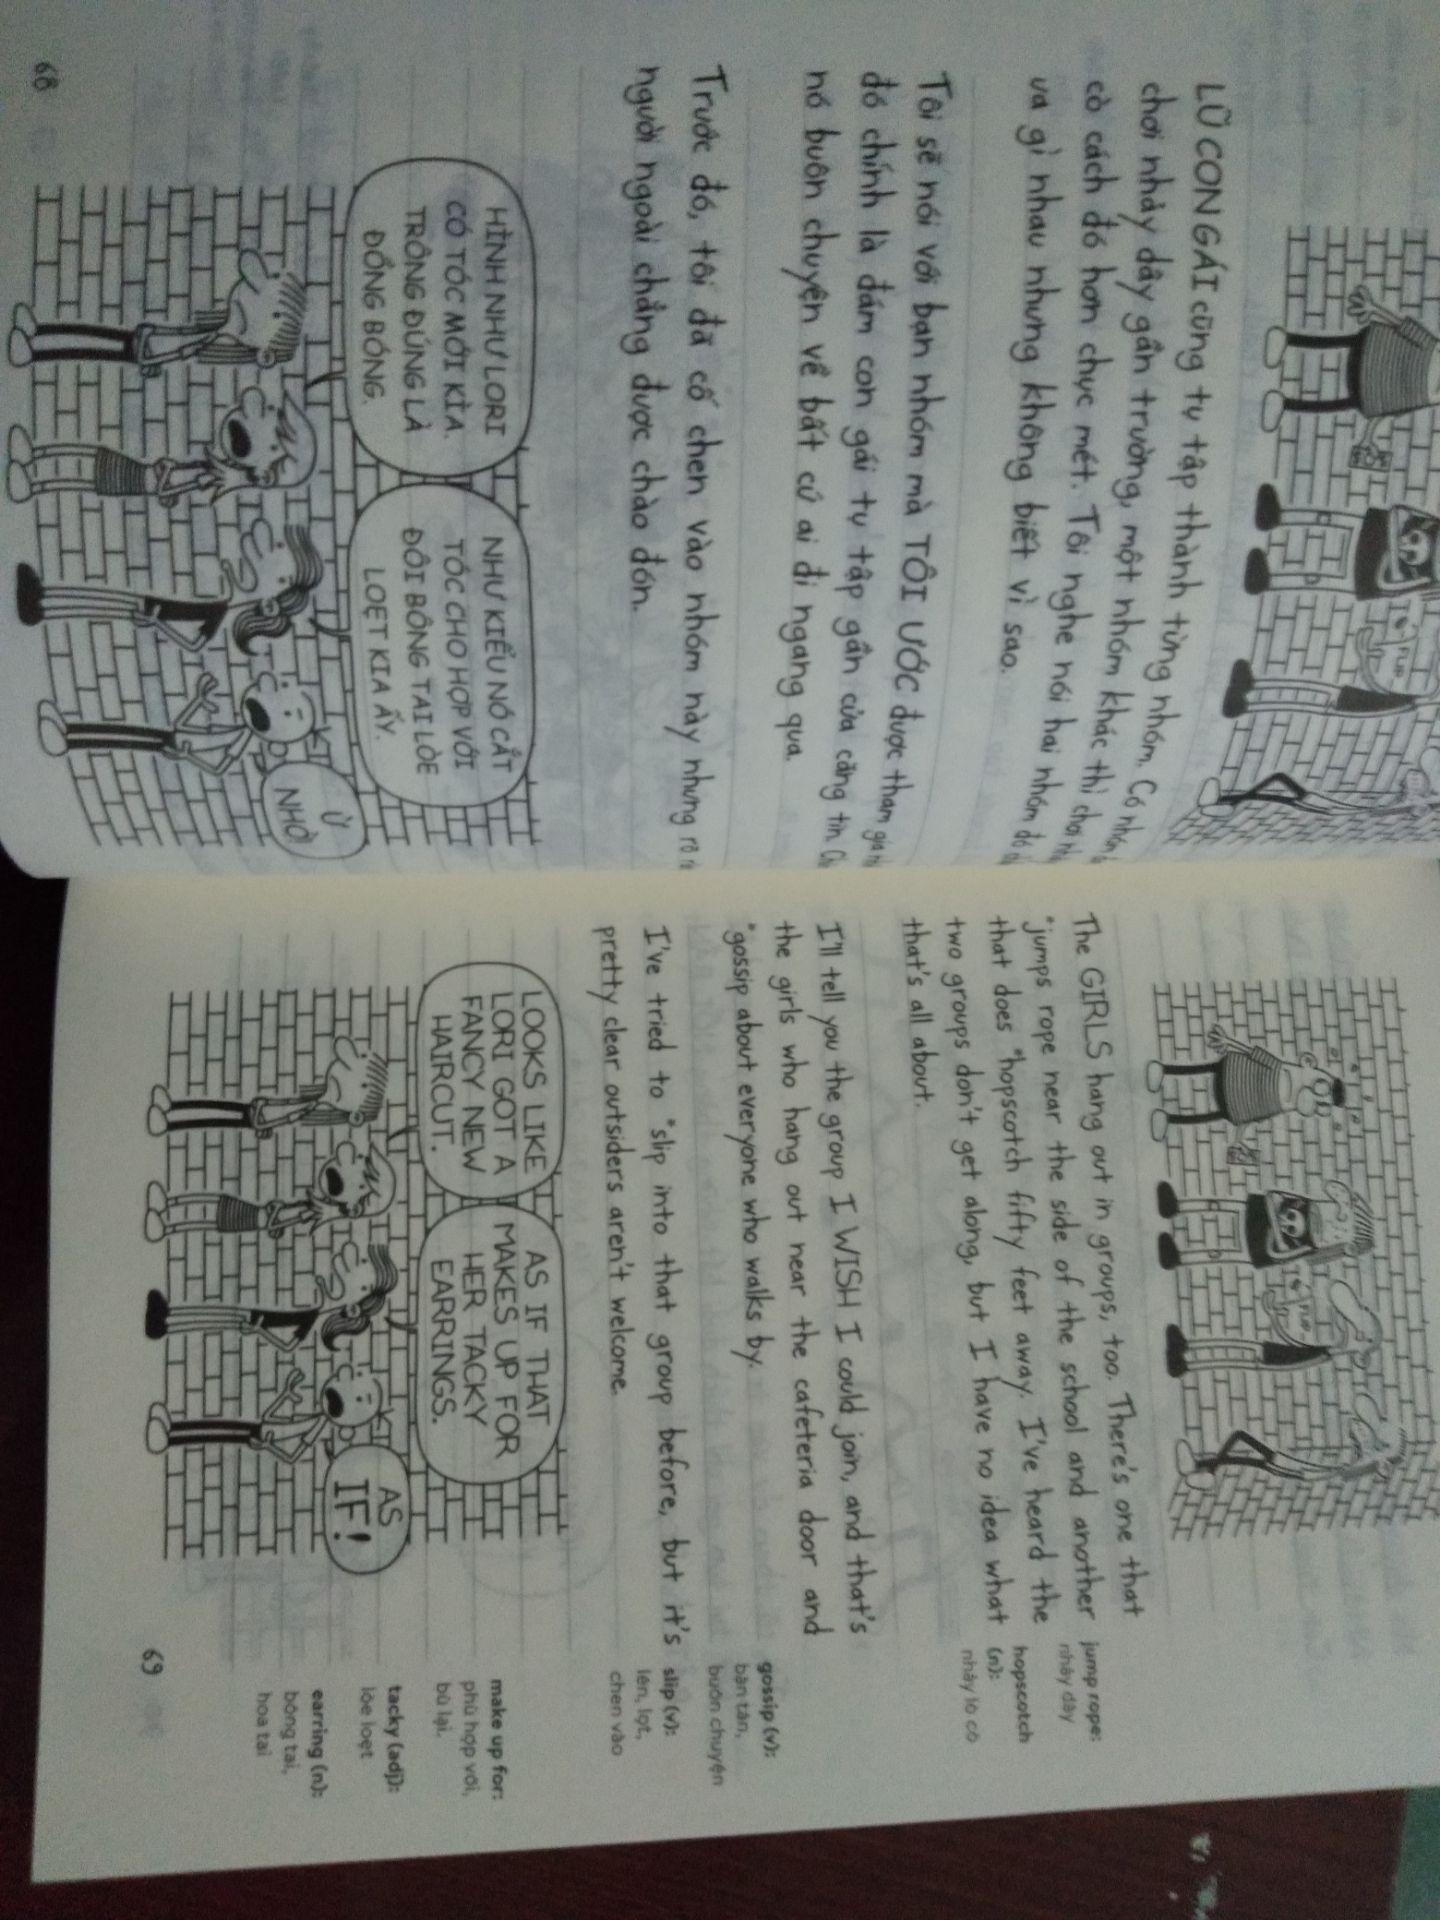 LŨ CON GÁI cũng tụ tập thành từng nhóm. Có nhóm
chơi nhảy dây gần trường, một nhóm khác thì chơi
cò cách đó hơn chục mét. Tôi nghe nói hai nhóm đó
ưa gì nhau nhưng không biết vì sao.
Tôi sẽ nói với bạn nhóm mà TÔI ƯỚC được tham gia
đó chính là đám con gái tụ tập gần cửa căng tin
nó buôn chuyện về bất cứ ai đi ngang qua.
Trước đó, tôi đã cố chen vào nhóm này nhưng rõ
người ngoài chẳng được chào đón.
HÌNH NHƯ LORI
CÓ TÓC MỚI KÌA.
TRÔNG ĐÚNG LÀ
ĐỎNG BÓNG.
NHƯ KIỂU NÓ CẮT
TÓC CHO HỢP VỚI
ĐÔI BÔNG TAI LÒE
LOẸT KIA ẤY.
Ừ
NHỜ
68
FLIP
The GIRLS hang out in groups, too. There's one that
*jumps rope near the side of the school and another
that does *hopscotch fifty feet away. I've heard the
two groups don't get along, but I have no idea what
that's all about.
I'll tell you the group I WISH I could join, and that's
the girls who hang out near the cafeteria door and
*gossip about everyone who walks by.
I've tried to *slip into that group before, but it's
pretty clear outsiders aren't welcome.
LOOKS LIKE
LORI GOT A
FANCY NEW
HAIRCUT.
AS IF THAT
MAKES UP FOR
HER TACKY
EARRINGS.
AS
IF!
jump rope:
nhảy dây
hopscotch
(n):
nhảy lò cò
gossip (v):
bàn tán,
buôn chuyện
slip (v):
lẻn, lọt,
chen vào
make up for:
phù hợp với,
bù lại.
tacky (adj):
lòe loẹt
earring (n):
bông tai,
hoa tai
69